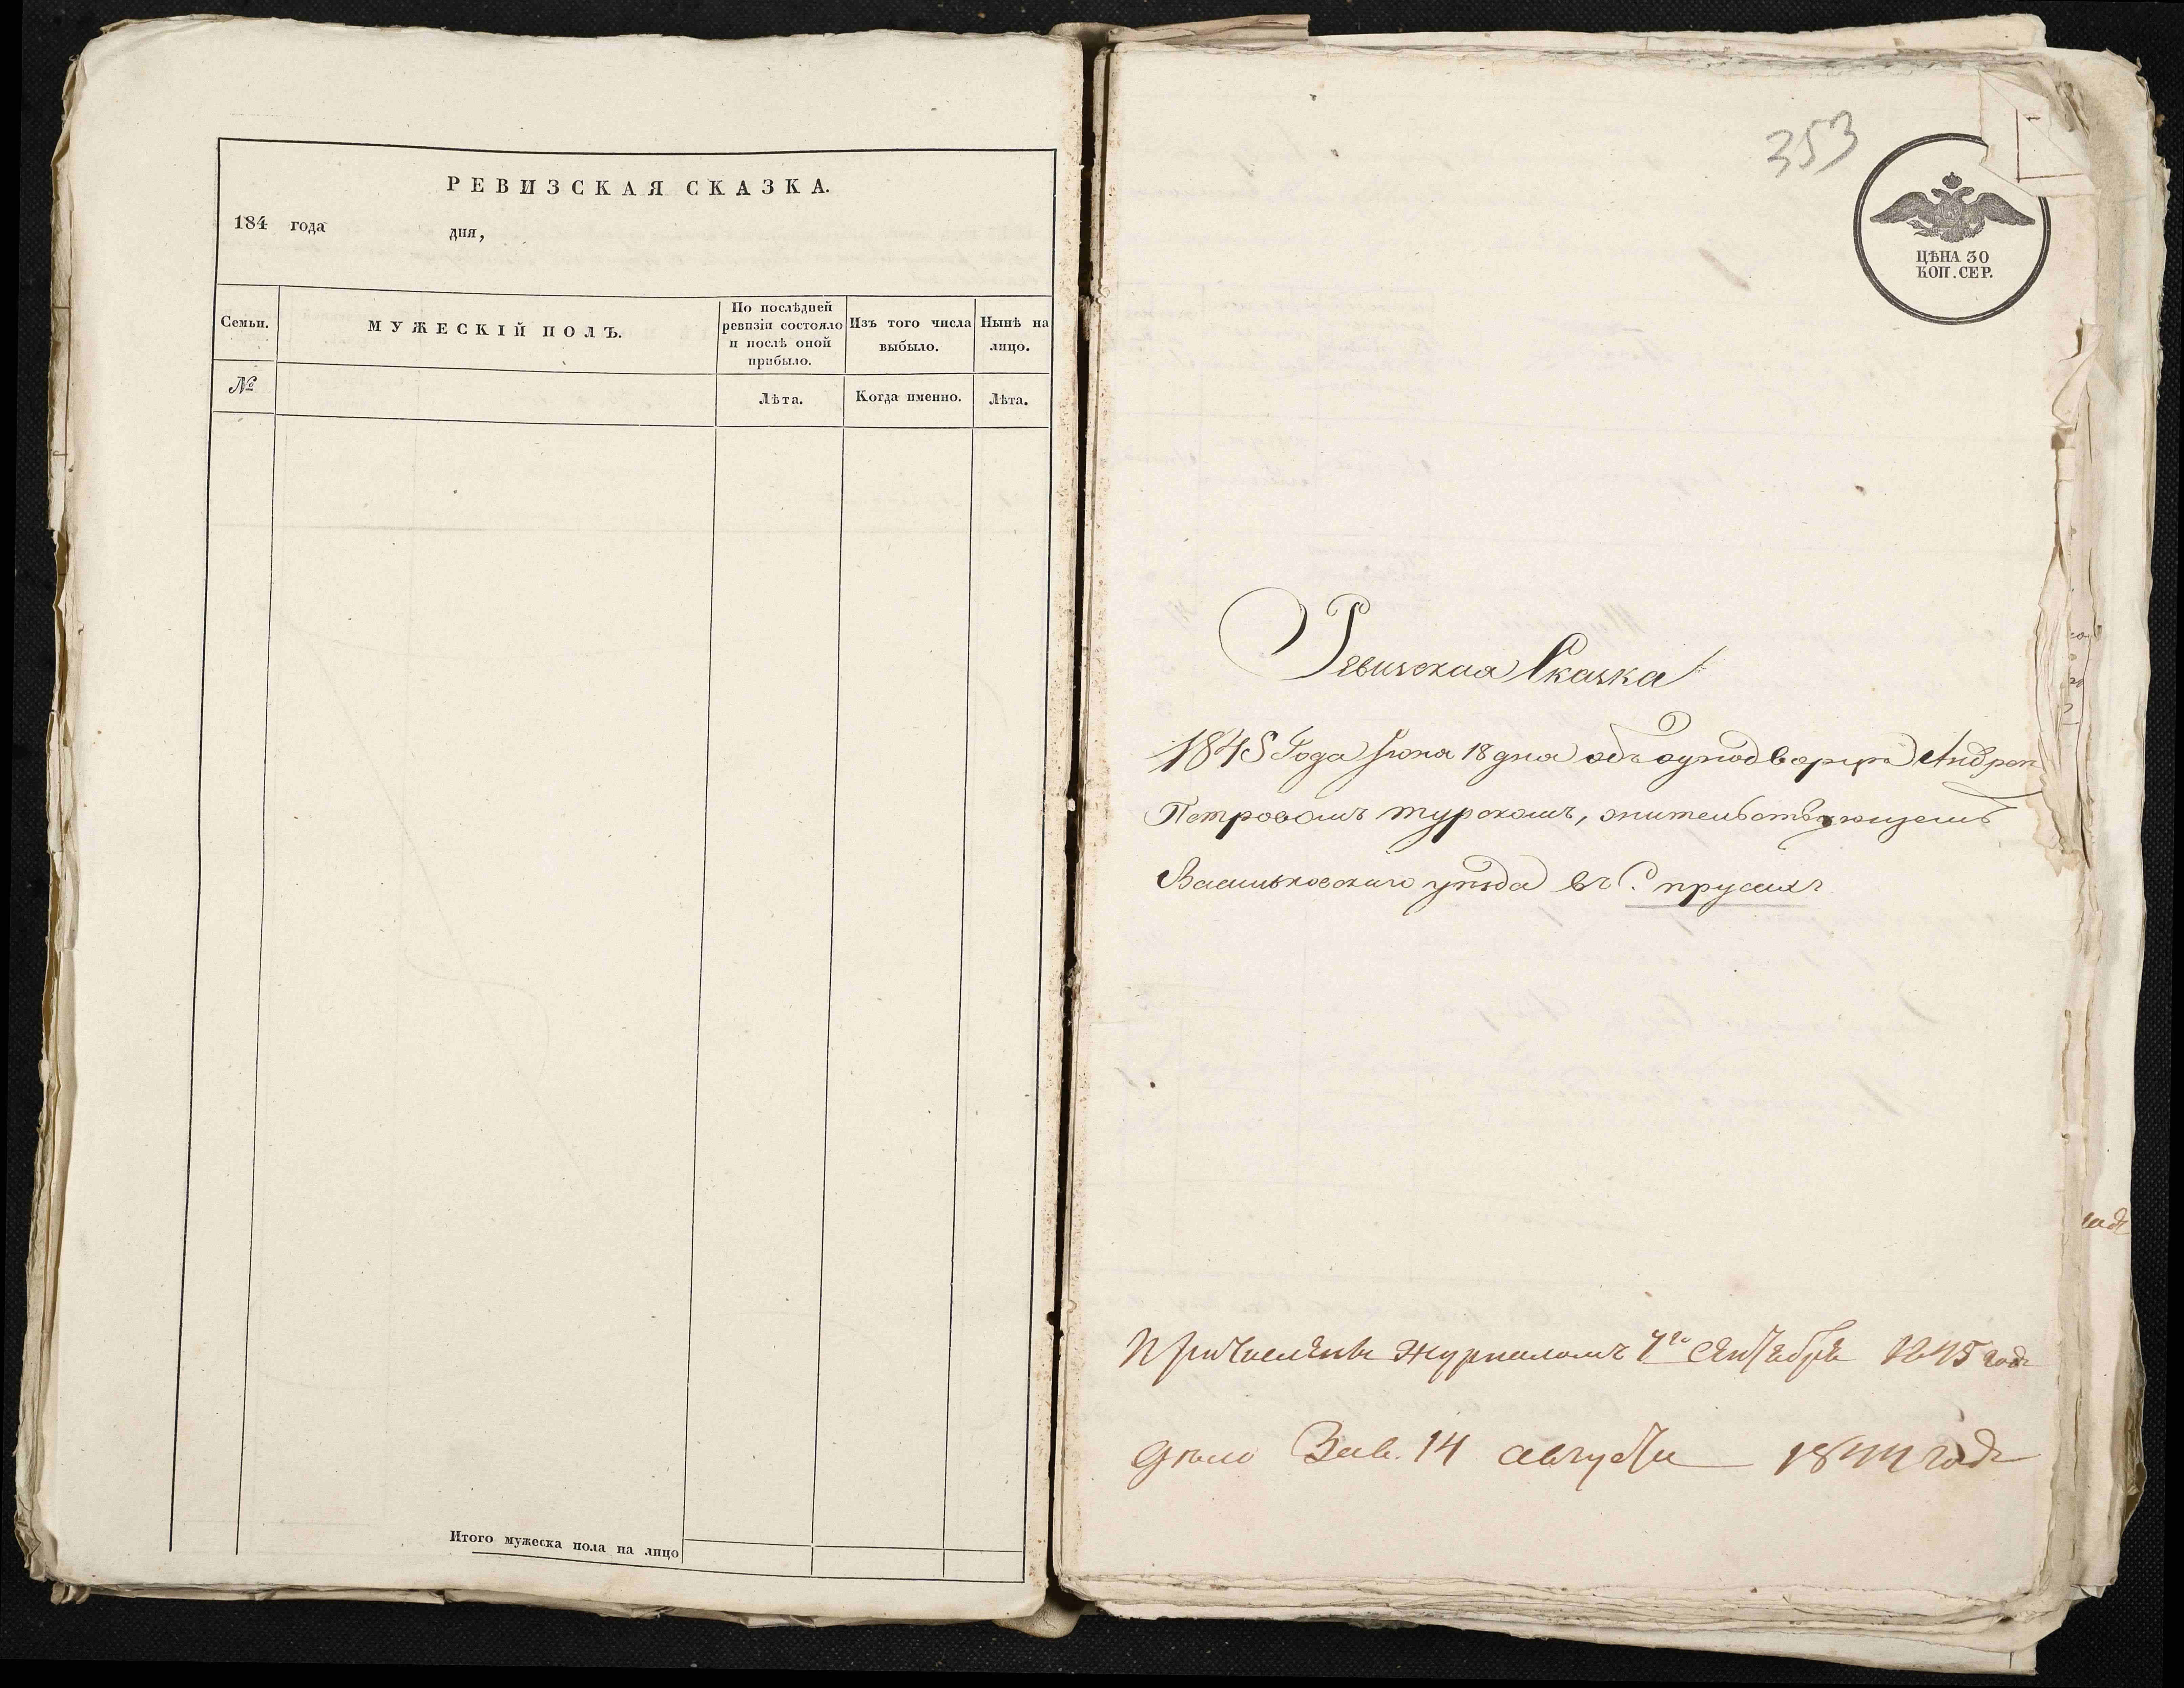 РЕВИЗСКАЯ СКАЗКА.
184 года дня,
Семьи.
МУЖЕСКІЙ ПОЛЪ.
По послѣдней
ревизіи состояло
и послѣ оной
прибыло.
Изъ того числа
выбыло.
Нынѣ на
лицо.
№
Лѣта.
Когда именно.
Лѣта.
Итого мужеска пола на лицо
353
ЦѢНА 30
КОП. СЕР.
Ревизская Сказка
1845 Года Іюня 18 дня объ однодворцѣ Андреѣ
Петровомъ Турскомъ, жительствующемъ
Васильковскаго уѣзда въ С. Прусахъ
Причисленъ журналомъ 7го Сентября 1845 года
Дѣло 14 августа 1844 года